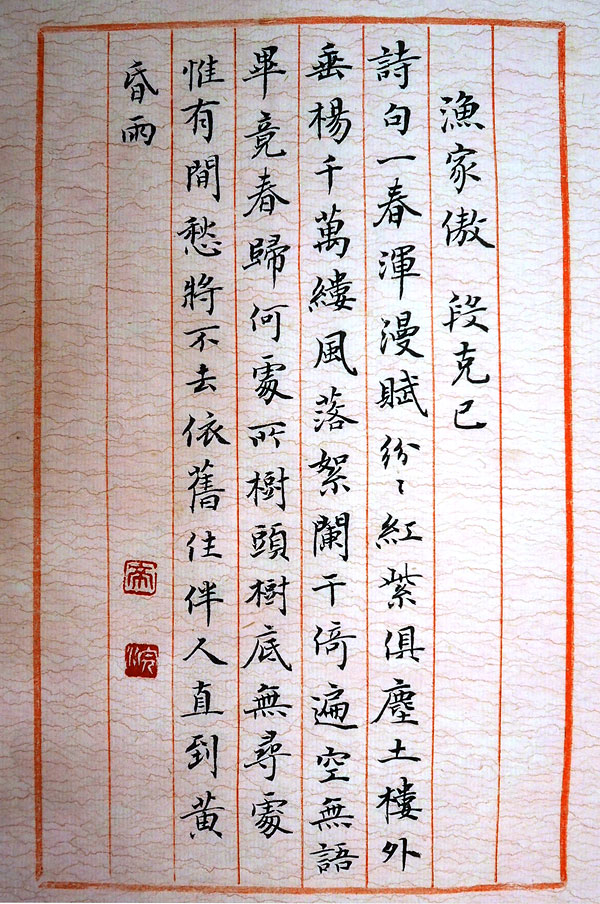 漁家傲 段克己
詩句一春渾漫賦紛〻紅紫俱塵土樓外
垂楊千萬縷風落絮闌干倚遍空無語
畢竟春歸何處所樹頭樹底無尋處
惟有間愁將不去依舊住伴人直到黃
昏雨